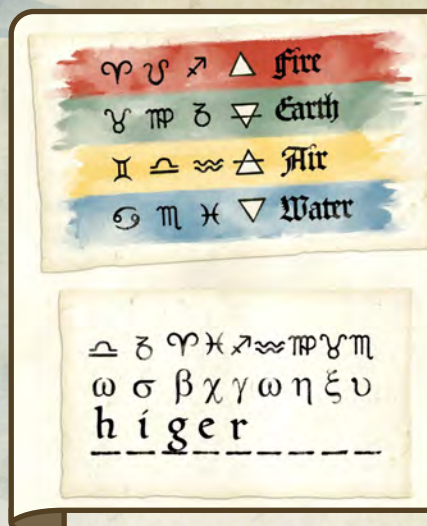 ♈ ♌ ♐ 🜂 Fire
♉ ♍ ♑ 🜃 Earth
♊ ♎ ♒ 🜁 Air
♋ ♏ ♓ 🜄 Water
♎ ♑ ♈ ♓ ♐ ♒ ♍ ♉ ♏
ω σ β χ γ ω η ξ υ
h i g e r